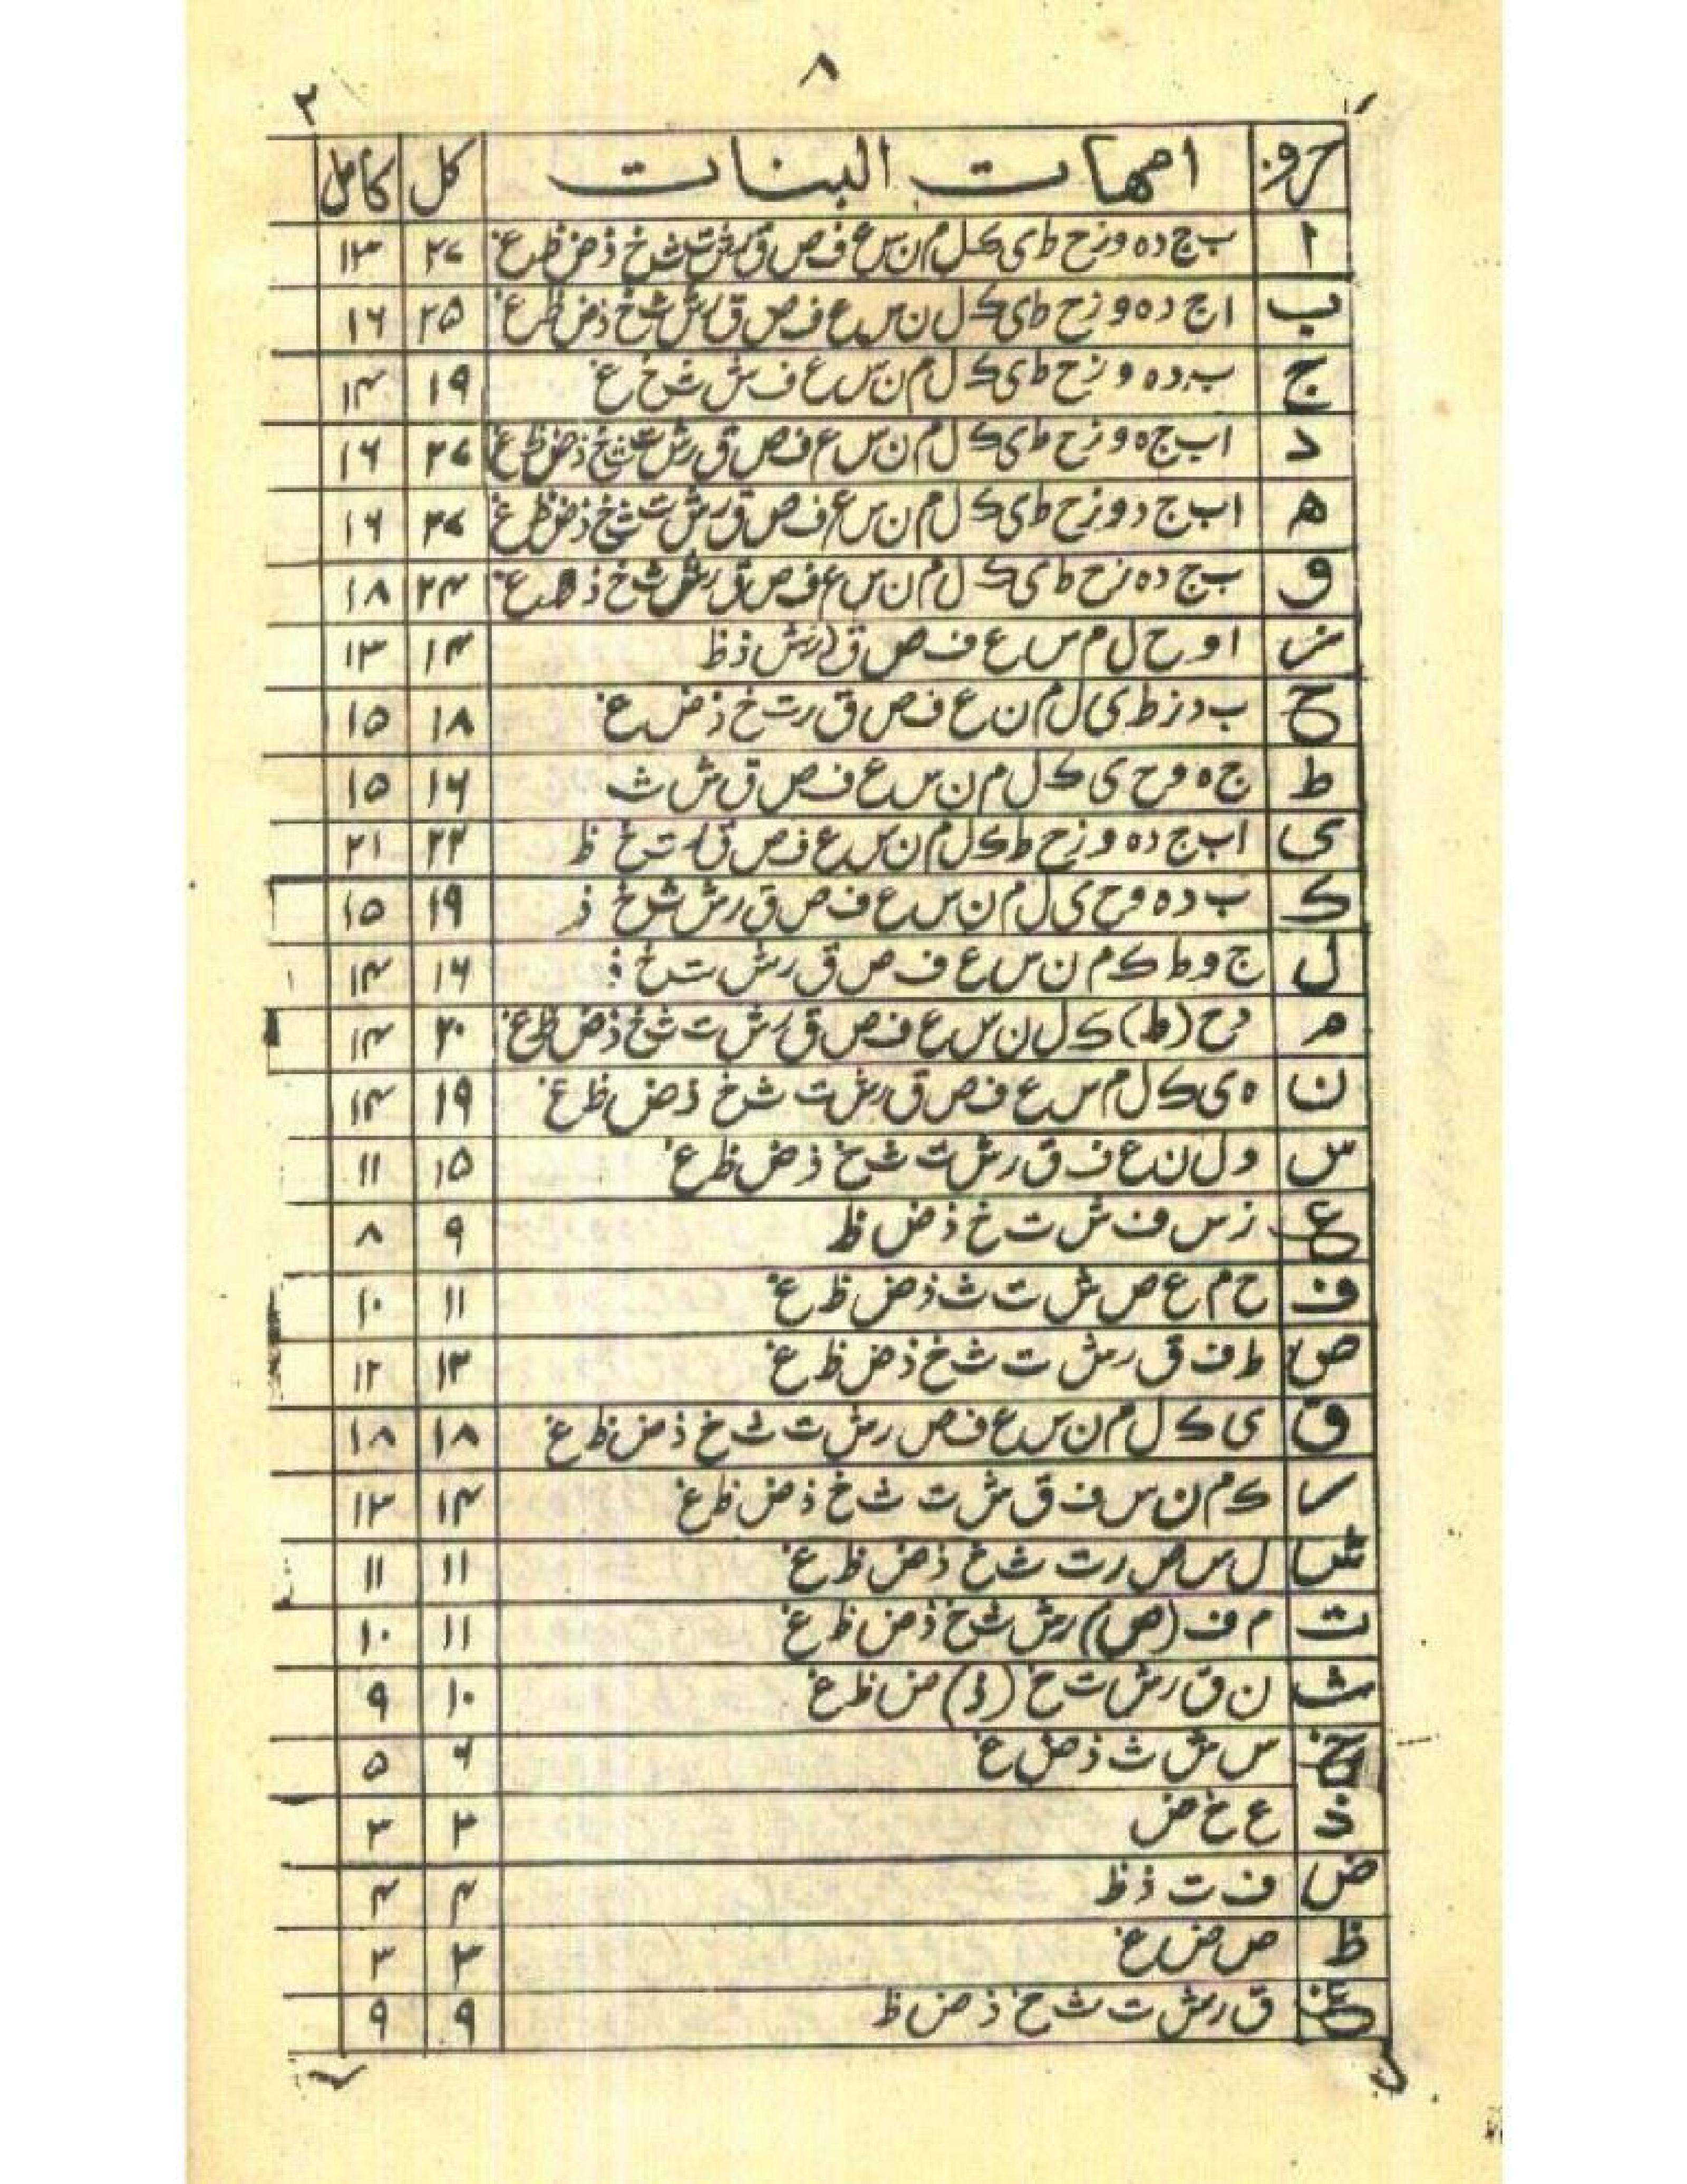 ۸
۲
حروف امهات البنات کل کامل
ا ب ج د ه و ز ح ط ی ک ل م ن س ع ف ص ق ر ش ت ث خ ذ ض ظ غ ۲۷ ۱۳
ب ا ج د ه و ز ح ط ی ک ل ن س ع ف ص ق ر ش ث خ ذ ض ظ غ ۲۵ ۱۶
ج ب د ه و ز ح ط ی ک ل م ن س ع ف ش ث خ غ ۱۹ ۱۴
د ا ب ج ه و ز ح ط ی ک ل م ن س ع ف ص ق ر ش ت ث خ ذ ض ظ غ ۲۷ ۱۶
ه ا ب ج د و ز ح ط ی ک ل م ن س ع ف ص ق ر ش ت ث خ ذ ض ظ غ ۲۷ ۱۶
و ب ج د ه ز ح ط ی ک ل م ن س ع ف ص ق ر ش ث خ ذ غ ۲۴ ۱۸
ز ا و ح ل م س ع ف ص ق ر ش ذ ظ ۱۴ ۱۳
ح ب د ز ط ی ل م ن ع ف ص ق ر ت خ ذ ض غ ۱۸ ۱۵
ط ج ه و ح ی ک ل م ن س ع ف ص ق ش ث ۱۶ ۱۵
ی ا ب ج د ه و ز ح ط ک ل م ن س ع ف ص ق ر ت خ ظ ۲۲ ۲۱
ک ب د ه و ح ی ل م ن س ع ف ص ق ر ش ث خ ذ ۱۹ ۱۵
ل ج و ط ک م ن س ع ف ص ق ر ش ت خ ذ ۱۶ ۱۴
م و ح (ط) ک ل ن س ع ف ص ق ر ش ت ث خ ذ ض ظ غ ۲۰ ۱۴
ن ه ی ک ل م س ع ف ص ق ر ش ت ث خ ذ ض ظ غ ۱۹ ۱۴
س و ل ن ع ف ق ر ش ت ث خ ذ ض ظ غ ۱۵ ۱۱
ع ز س ف ش ت خ ذ ض ظ ۹ ۸
ف ح م ع ص ش ت ث ذ ض ظ غ ۱۱ ۱۰
ص ط ف ق ر ش ت ث خ ذ ض ظ غ ۱۲ ۱۲
ق ی ک ل م ن س ع ف ص ر ش ت ث خ ذ ض ظ غ ۱۸ ۱۸
ر ک م ن س ف ق ش ت ث خ ذ ض ظ غ ۱۴ ۱۳
ش ل س ص ر ت ث خ ذ ض ظ غ ۱۱ ۱۱
ت م ف (ص) ر ش ث خ ذ ض ظ غ ۱۱ ۱۰
ث ن ق ر ش ت خ (ذ) ض ظ غ ۱۰ ۹
خ س ش ث ذ ض غ ۶ ۵
ذ ع خ ض ۳ ۳
ض ف ت ذ ظ ۴ ۴
ظ ص ض غ ۳ ۳
غ ق ر ش ت ث خ ذ ض ظ ۹ ۹